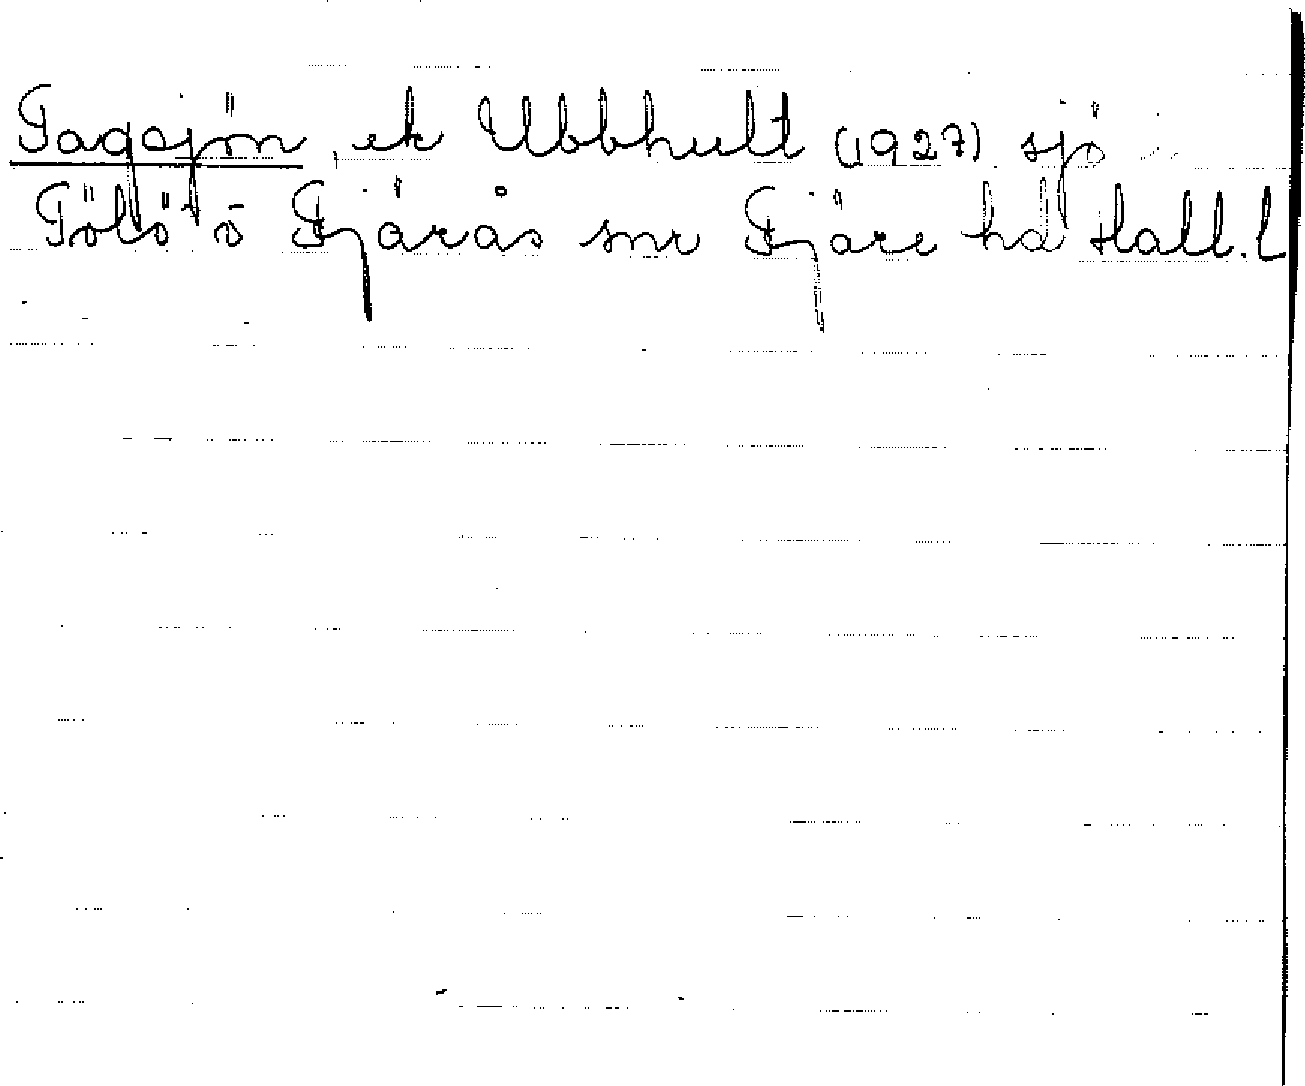 Tagsjön, ek Ubbhult (1927) sjö i
Tölö o Fjärås snr Fjäre hd Hall. l